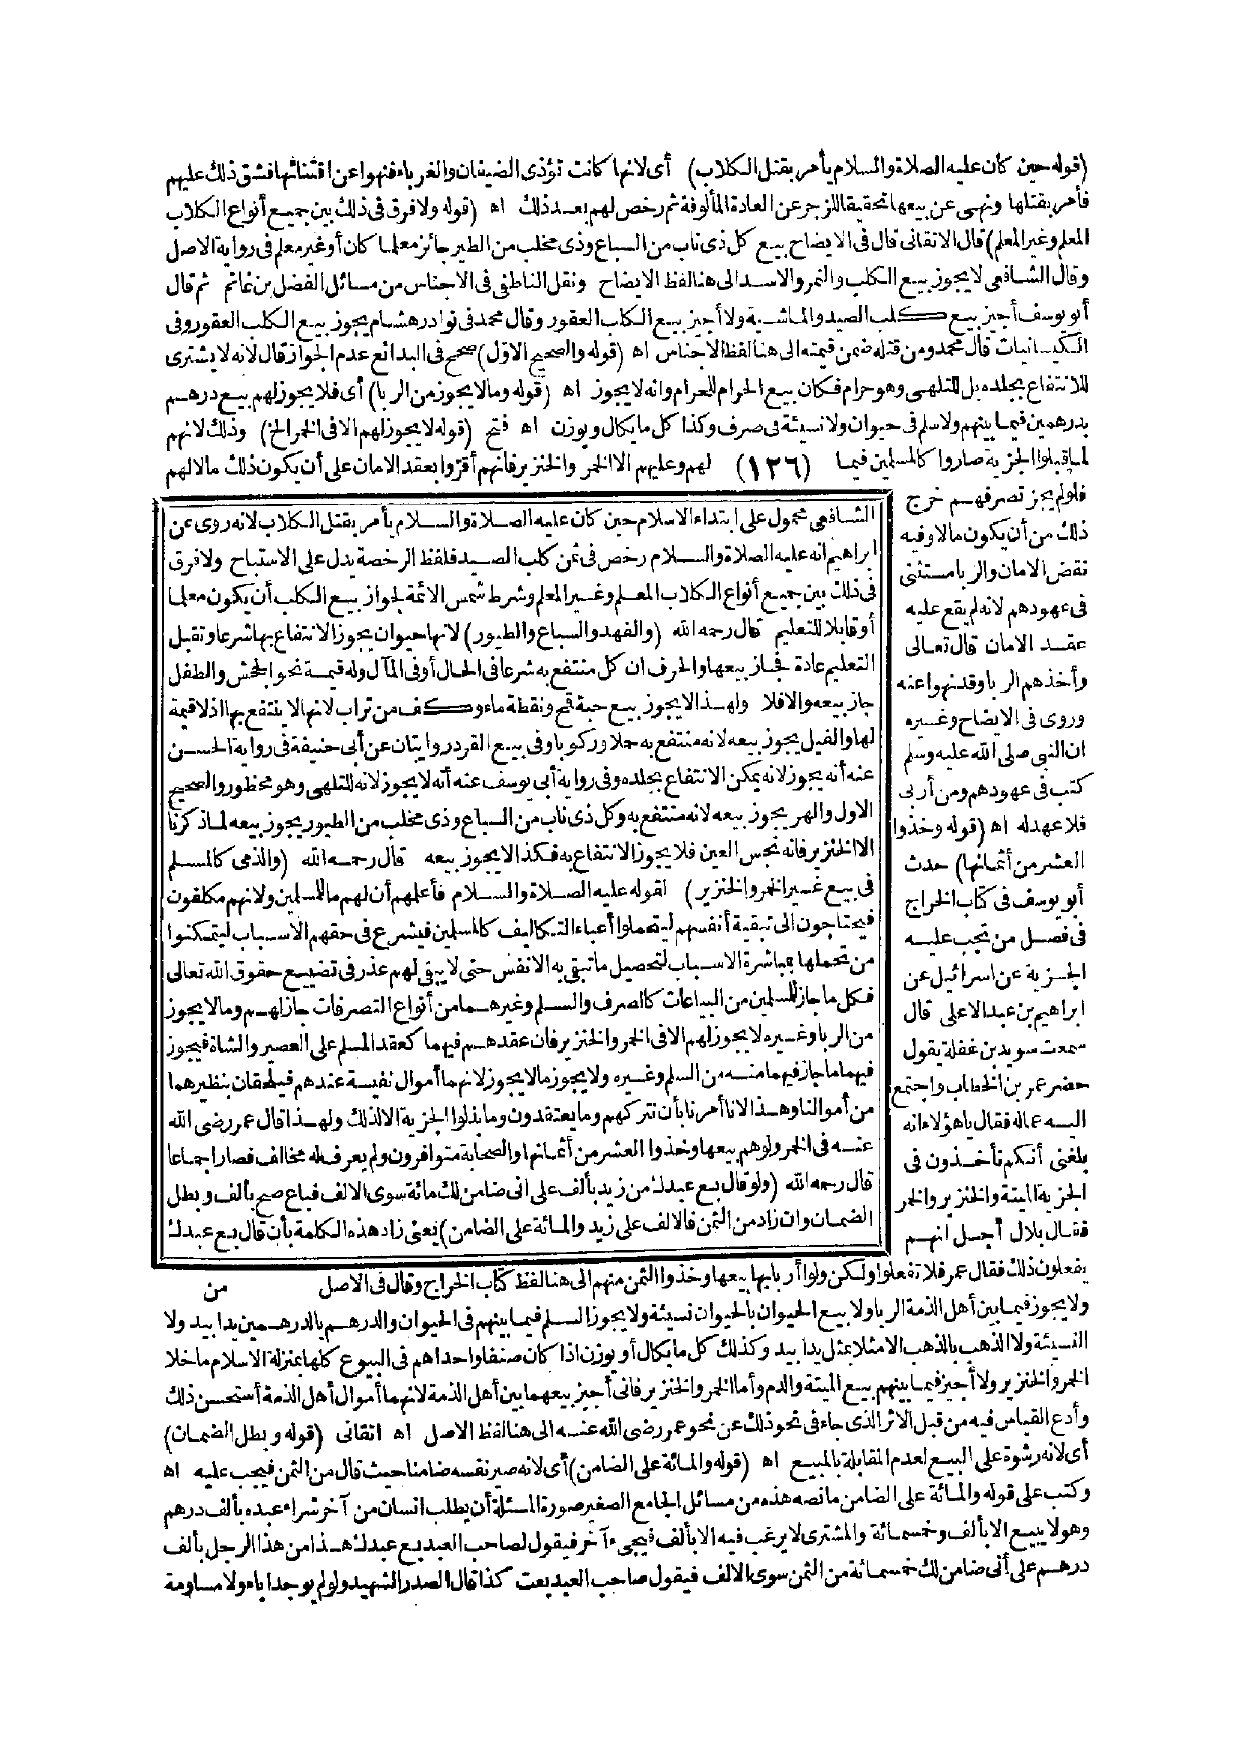 (قوله حين كان عليه الصلاة والسلام يأمر بقتل الكلاب) أى لانها كانت تؤذى الضيفان والغرباء فنهوا عن اقتنائها فشق ذلك عليهم
فأمر بقتلها ونهى عن بيعها تحقيقا للزجر عن العادة المألوفة ثم رخص لهم بعد ذلك اه (قوله ولا فرق فى ذلك بين جميع أنواع الكلاب
المعلم وغير المعلم) قال الاتقانى قال فى الايضاح بيع كل ذى ناب من السباع وذى مخلب من الطير جائز معلما كان أو غير معلم فى رواية الاصل
وقال الشافعى لا يجوز بيع الكلب والنمر والاسد الى هنا لفظ الايضاح ونقل الناطفى فى الاجناس من مسائل الفضل بن غانم ثم قال
أبو يوسف أجيز بيع كلب الصيد والماشية ولا أجيز بيع الكلب العقور وقال محمد فى نوادر هشام يجوز بيع الكلب العقور وفى
الكيسانيات قال محمد ومن قتله ضمن قيمته الى هنا لفظ الاجناس اه (قوله والصحيح الاول) صحح فى البدائع عدم الجواز قال لانه لا يشترى
للانتفاع بجلده بل للتلهى وهو حرام فكان بيع الحرام للحرام وانه لا يجوز اه (قوله وما لا يجوز من الربا) أى فلا يجوز لهم بيع درهم
بدرهمين فيما بينهم ولا سلم فى حيوان ولا نسيئة فى صرف وكذا كل ما يكال ويوزن اه فتح (قوله لا يجوز لهم الا فى الخمر الخ) وذلك لانهم
لما قبلوا الجزية صاروا كالمسلمين فيما (١٢٦) لهم وعليهم الا الخمر والخنزير فانهم أقروا بعقد الامان على أن يكون ذلك مالا لهم
فلو لم يجز تصرفهم خرج
ذلك من أن يكون مالا وفيه
نقض الامان والربا مستثنى
فى عهودهم لانه لم يقع عليه
عقد الامان قال تعالى
وأخذهم الربا وقد نهوا عنه
وروى فى الايضاح وغيره
ان النبى صلى الله عليه وسلم
كتب فى عهودهم ومن أربى
فلا عهد له اه (قوله وخذوا
العشر من أثمانها) حدث
أبو يوسف فى كتاب الخراج
فى فصل من تجب عليه
الجزية عن اسرائيل عن
ابراهيم بن عبد الاعلى قال
سمعت سويد بن غفلة يقول
حضر عمر بن الخطاب واجتمع
اليه عماله فقال ياهؤلاء انه
بلغنى أنكم تأخذون فى
الجزية الميتة والخنزير والخمر
فقال بلال أجل انهم
يفعلون ذلك فقال عمر فلا تفعلوا ولكن ولوا أربابها بيعها وخذوا الثمن منهم الى هنا لفظ كتاب الخراج وقال فى الاصل
ولا يجوز فيما بين أهل الذمة الربا ولا بيع الحيوان بالحيوان نسيئة ولا يجوز السلم فيما بينهم فى الحيوان والدرهم بالدرهمين يدا بيد ولا
النسيئة ولا الذهب بالذهب الا مثلا بمثل يدا بيد وكذلك كل ما يكال أو يوزن اذا كان صنفا واحدا هم فى البيوع كلها بمنزلة الاسلام ما خلا
الخمر والخنزير ولا أجيز فيما بينهم بيع الميتة والدم وأما الخمر والخنزير فانى أجيز بيعهما بين أهل الذمة لانهما أموال أهل الذمة أستحسن ذلك
وأدع القياس فيه من قبل الاثر الذى جاء فى نحو ذلك عن نحو عمر رضى الله عنه الى هنا لفظ الاصل اه اتقانى (قوله وبطل الضمان)
أى لانه رشوة على البيع لعدم المقابلة بالمبيع اه (قوله والمائة على الضامن) أى لانه صير نفسه ضامنا حيث قال من الثمن فيجب عليه اه
وكتب على قوله والمائة على الضامن ما نصه هذه من مسائل الجامع الصغير صورة المسئلة أن يطلب انسان من آخر شراء عبده بألف درهم
وهو لا يبيع الا بألف وخمسمائة والمشترى لا يرغب فيه الا بألف فيجىء آخر فيقول لصاحب العبد بع عبدك هذا من هذا الرجل بألف
درهم على أنى ضامن لك خمسمائة من الثمن سوى الالف فيقول صاحب العبد بعت كذا قال الصدر الشهيد ولو لم يوجد اباء ولا مساومة
الشافعى محمول على ابتداء الاسلام حين كان عليه الصلاة والسلام يأمر بقتل الكلاب لانه روى عن
ابراهيم انه عليه الصلاة والسلام رخص فى ثمن كلب الصيد فلفظ الرخصة يدل على الاستباح ولا فرق
فى ذلك بين جميع أنواع الكلاب المعلم وغير المعلم وشرط شمس الائمة لجواز بيع الكلب أن يكون معلما
أو قابلا للتعليم قال رحمه الله (والفهد والسباع والطيور) لانها حيوان يجوز الانتفاع بها شرعا وتقبل
التعليم عادة فجاز بيعها والحرف ان كل منتفع به شرعا فى الحال أو فى المآل وله قيمة نحو الجحش والطفل
جاز بيعه والا فلا ولهذا لا يجوز بيع حبة قمح ونقطة ماء وكف من تراب لانها لا ينتفع بها اذ لا قيمة
لها والفيل يجوز بيعه لانه منتفع به حملا وركوبا وفى بيع القرد روايتان عن أبى حنيفة فى رواية الحسن
عنه أنه يجوز لانه يمكن الانتفاع بجلده وفى رواية أبى يوسف عنه أنه لا يجوز لانه للتلهى وهو محظور والصحيح
الاول والهر يجوز بيعه لانه منتفع به وكل ذى ناب من السباع وذى مخلب من الطيور يجوز بيعه لما ذكرنا
الا الخنزير فانه نجس العين فلا يجوز الانتفاع به فكذا لا يجوز بيعه قال رحمه الله (والذمى كالمسلم
فى بيع غير الخمر والخنزير) لقوله عليه الصلاة والسلام فأعلمهم أن لهم ما للمسلمين ولانهم مكلفون
فيحتاجون الى تبقية أنفسهم ليتحملوا أعباء التكاليف كالمسلمين فيشرع فى حقهم الاسباب ليتمكنوا
من تحملها بمباشرة الاسباب لتحصيل ما تبقى به الانفس حتى لا يبقى لهم عذر فى تضييع حقوق الله تعالى
فكل ما جاز للمسلمين من البياعات كالصرف والسلم وغيرهما من أنواع التصرفات جاز لهم وما لا يجوز
من الربا وغيره لا يجوز لهم الا فى الخمر والخنزير فان عقدهم فيهما كعقد المسلم على العصير والشاة فيجوز
فيهما ما جاز فيهما منه من السلم وغيره ولا يجوز ما لا يجوز لانهما أموال نفيسة عندهم فيلحقان بنظيرهما
من أموالنا وهذا لانا أمرنا بأن نتركهم وما يعتقدون وما بذلوا الجزية الا لذلك ولهذا قال عمر رضى الله
عنه فى الخمر ولوهم بيعها وخذوا العشر من أثمانها والصحابة متوافرون ولم يعرف له مخالف فصار اجماعا
قال رحمه الله (ولو قال بع عبدك من زيد بألف على انى ضامن لك مائة سوى الالف فباع صح بألف وبطل
الضمان وان زاد من الثمن فالالف على زيد والمائة على الضامن) يعنى زاد هذه الكلمة بأن قال بع عبدك
من